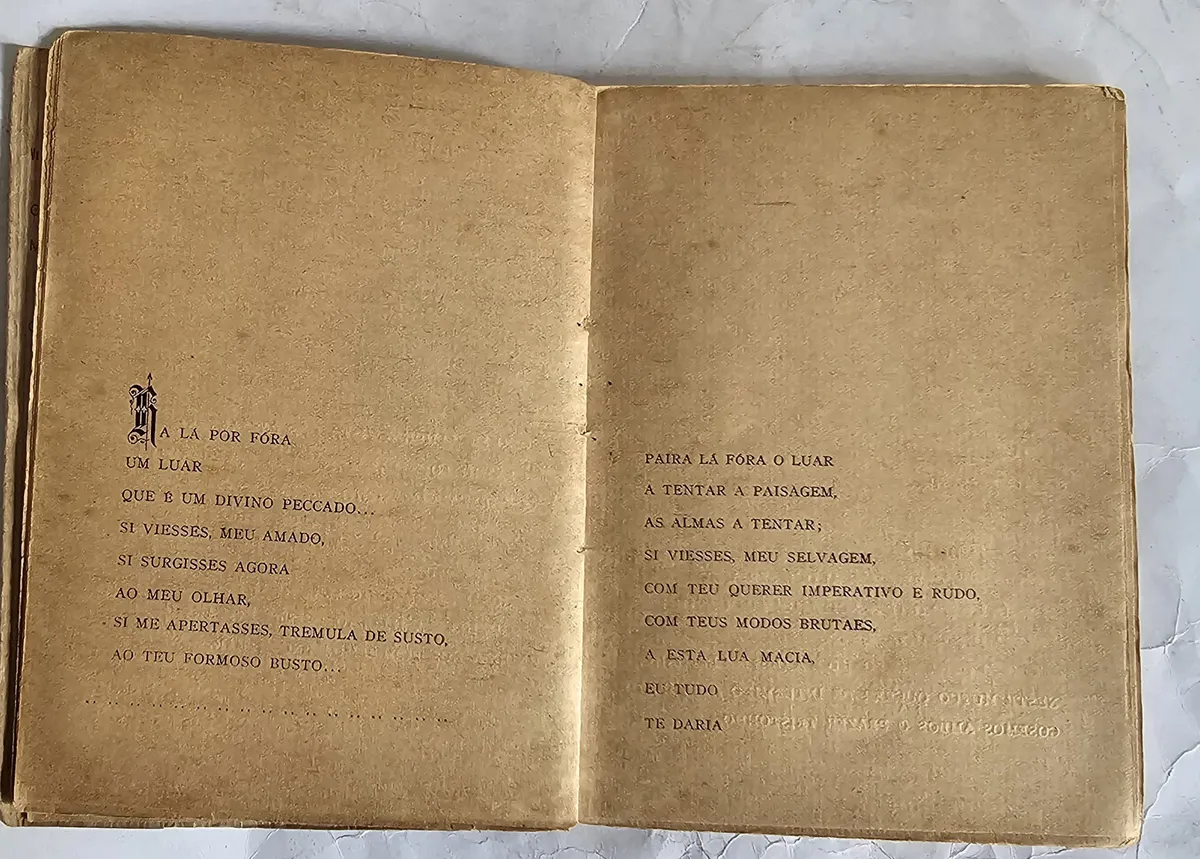 HA LÁ POR FÓRA
UM LUAR
QUE É UM DIVINO PECCADO...
SI VIESSES, MEU AMADO,
SI SURGISSES AGORA
AO MEU OLHAR,
SI ME APERTASSES, TREMULA DE SUSTO,
AO TEU FORMOSO BUSTO...
.. .. .. .. .. .. .. .. .. .. .. .. .. .. .. .. ..
PAIRA LÁ FÓRA O LUAR
A TENTAR A PAISAGEM,
AS ALMAS A TENTAR;
SI VIESSES, MEU SELVAGEM,
COM TEU QUERER IMPERATIVO E RUDO,
COM TEUS MODOS BRUTAES,
A ESTA LUA MACIA,
EU TUDO
TE DARIA